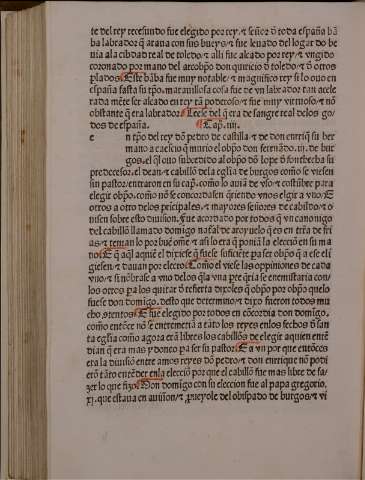 te del rey recesundo fue elegido por rey ⁊ señor ð toda españa bã
ba labrador q̃ araua con sus bueys ⁊ fue leuado del lugar do be
uia ala cibdad real de toledo ⁊ alli fue alcado por rey ⁊ vngido
coronado por mano del arcobpo don quirico ð toledo ⁊ ð otros
plados Este bãba fue muy notable ⁊ magnifico rey si lo ouo en
españa fasta su tpo. marauillosa cosa fue de vn labrador tan acele
rada mẽte ser alcado en rey tã poderoso ⁊ fue muy virtuoso ⁊ nõ
obstante q̃ era labrador Leese del q̃ era de sangre real delos go
dos de españa. Cap. iiij.
e n tpo del rey dõ pedro de castilla ⁊ de don enrriq̃ su her
mano acaescio q̃ murio el obpo don fernãdo .iij. de bur
gos. el q̃l ouo subcedido al obpo dõ lope ð fontbecha su
predecesor. el dean ⁊ cabillo dela eglia de burgos como se viesen
sin pastor entraron en su cap. como lo auiã de vso ⁊ costũbre para
elegir obpo. como nõ se concordasen q̃riendo vnos elgir a vno. E
otros a otro delos prĩcipales ⁊ mayores señores de cabildo ⁊ o
uisen sobre esto diuision. Fue acordado por todos q̃ vn canonigo
del cabillo llamado domingo natal de aroyuelo q̃ es en trã de fri
as ⁊ tenian lo por buẽ ome ⁊ asi lo era q̃ poniã la elecciõ en su ma
no E q̃ aql aquiẽ el dixiese q̃ fuese suficiẽte pa ser obpo q̃ a ese eli
giesen ⁊ dauan por electo Como el viese las oppiniones de cada
vno ⁊ si nõbrase a vno delos q̃ la vna pte q̃ria se enemistaria con
los otros pa los quitar ð referta dixoles q̃ obpo por obpo quelo
fuese don domigo. desto que determino ⁊ dixo fueron todos mu
cho otentos E fue elegido por todos en cõcordia don domigo.
como entõce nõ se entremetiã a tãto los reyes enlos fechos ð san
ta eglia como agora erã libres los cabillos de elegir aquien entẽ
dian q̃ era mas ydoneo pa ser su pastor E a vn por que entõces
era la diuisiõ entre amos reyes dõ pedro ⁊ don enrique nõ podi
erõ tãto entẽder enla elecciõ por que el cabillo fue mas libre de fa
zer lo que fizo Don domigo con su eleccion fue al papa gregorio.
xj. que estaua en auiñon ⁊ proueyole del obispado de burgos ⁊ vi